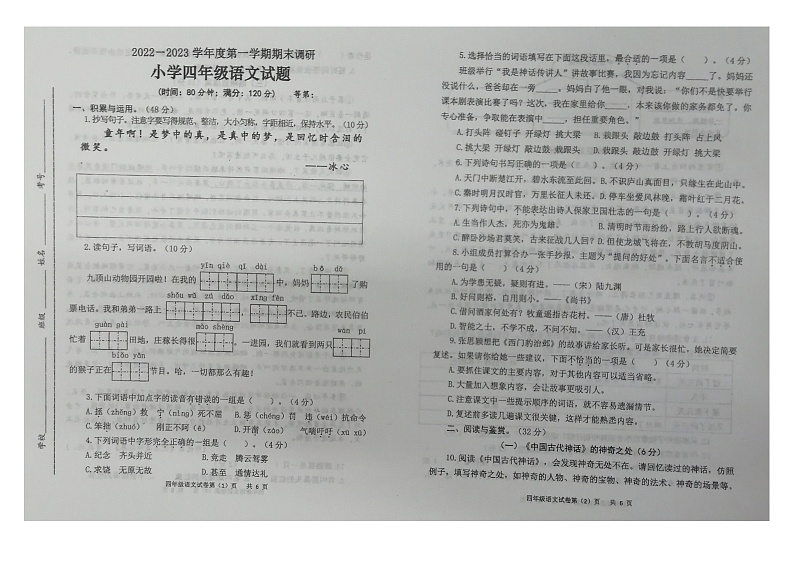 2022—2023 学年度第一学期期末调研
小学四年级语文试题
(时间：80 分钟；满分：120 分） 等第：
一、积累与运用。（48 分）
1.抄写句子。注意字要写得规范、整洁，大小匀称，字距相近，保持水平。（10 分）
童年啊！是梦中的真，是真中的梦，是回忆时含泪的
微笑。
——冰心
2.读句子，写词语。（10 分）
yīn qiè qī dài
bō dǎ
九顶山动物园开园啦！在我的 中，妈妈 了购
shǒu wǔ zú dǎo xīng fèn
票电话。我和弟弟一路上 ， 不已。路边，农民伯伯
guàn gài mào shèng wān pí
忙着 田地，庄稼长得很 。一进园，我们就看到两只
biǎo yǎn
的猴子正在 节目。哈，一切都那么有趣！
3.下面词语中加点字的读音有错误的一组是（ ）。（4 分）
A.拯（zhěng）救 宁（nìng）死不屈 B.惩（chéng）罚 违（wéi）抗命令
C.笨拙（zhuó） 刚正不阿（ē） D.开凿（záo） 气喘吁吁（xū xū）
4.下列词语中字形完全正确的一组是（ ）。（4 分）
A.纪念 齐头并近 B.竞走 腾云驾雾
C.求饶 无原无故 D.甚至 通情达礼
四年级语文试卷第（1）页 共 6 页
5.选择恰当的词语填写在下面这段话里，最合适的一项是（ ）。（4 分）
班级举行“我是神话传讲人”讲故事比赛，我因为忘记内容____了，妈妈还
没说什么，爸爸却在一旁____。妈妈白了他一眼，对我说：“你们不是快要举行
课本剧表演比赛了吗？这次，我在家里给你____，本来该你做的家务都免了。你
专心准备，争取能在表演中____，担任重要角色。”
A.打头阵 碰钉子 开绿灯 挑大梁 B.栽跟头 敲边鼓 打头阵 占上风
C.栽跟头 敲边鼓 开绿灯 挑大梁
6.下列诗句书写正确的一项是（ ）。（4 分）
A.天门中断楚江开，碧水东流至此回。B.不识庐山真面目，只缘生在此山中。
C.秦时明月汉时官，万里长征人未还。D.停车坐爱风林晚，霜叶红于二月花。
7.下列诗句中，不能表达出诗人保家卫国壮志的一句是（ ）。（4 分）
A.生当作人杰，死亦为鬼雄。 B.清明时节雨纷纷，路上行人欲断魂。
C.醉卧沙场君莫笑，古来征战几人回？D.但使龙城飞将在，不教胡马度阴山。
8.小组成员打算合办一张手抄报，主题为“提问的好处”。下面名言不适合使
用的一句是（ ）（4 分）
A.为学患无疑，疑则有进。——（宋）陆九渊
B.好问则裕，自用则小。——《尚书》
C.借问酒家何处有？牧童遥指杏花村。——（唐）杜牧
D.智能之士，不学不成，不问不知。——（汉）王充
9.张思颖想把《西门豹治邺》的故事讲给家长听。可是家长很忙，她决定简要
复述。如果请你给她一些建议，下面不恰当的一项是（ ）（4 分）
A.要抓住课文的主要内容，对于其他内容可以适当省略。
B.大量加入想象内容，会让故事更吸引人。
C.注意课文中一些提示顺序的词语，就不容易遗漏情节。
D.复述前多读几遍课文很关键，这样才能熟悉内容。
二、阅读与鉴赏。（32 分）
（一）《中国古代神话》的神奇之处（6 分）
10.阅读《中国古代神话》，会发现神奇无处不在。请回忆读过的神话，仿照
例子，填写神奇之处，如神奇的人物、神奇的宝物、神奇的法术、神奇的场景等。
四年级语文试卷第（2）页 共 6 页
学校
班级
姓名
考号